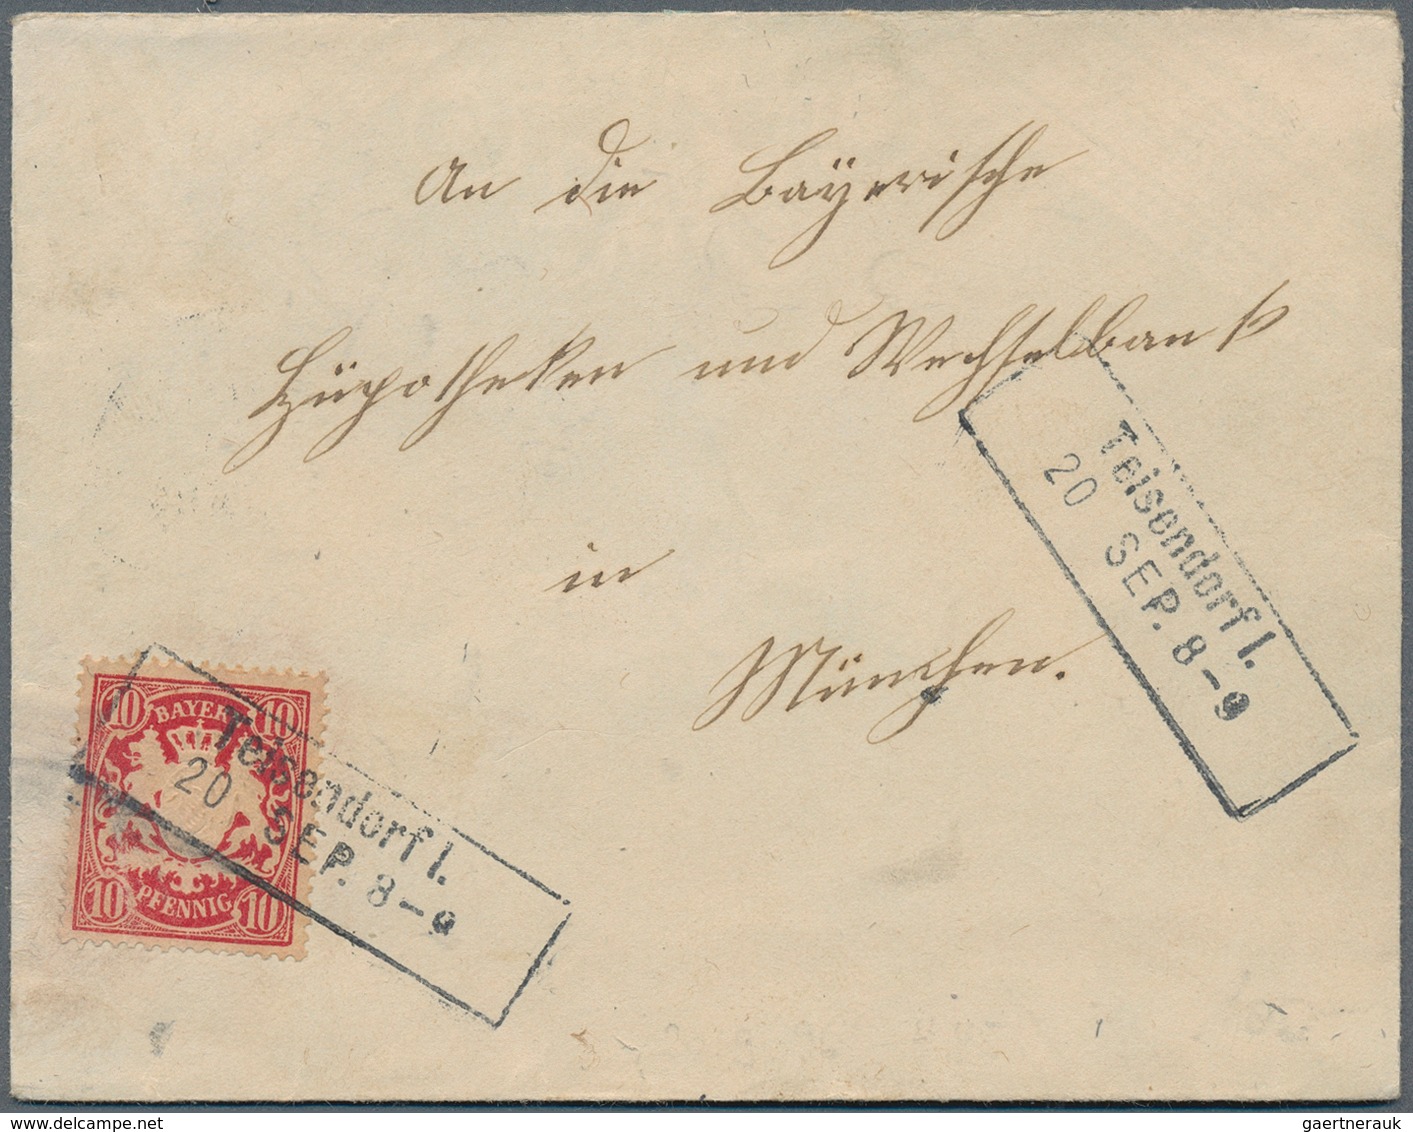 An die Bayerische
Hÿpotheken und Wechselbank
in
München.
Teisendorf I.
20 SEP. 8-9
10 BAYERN 10
10 PFENNIG 10
Teisendorf I.
20 SEP. 8-9
delcampe.net
gaertnerauk